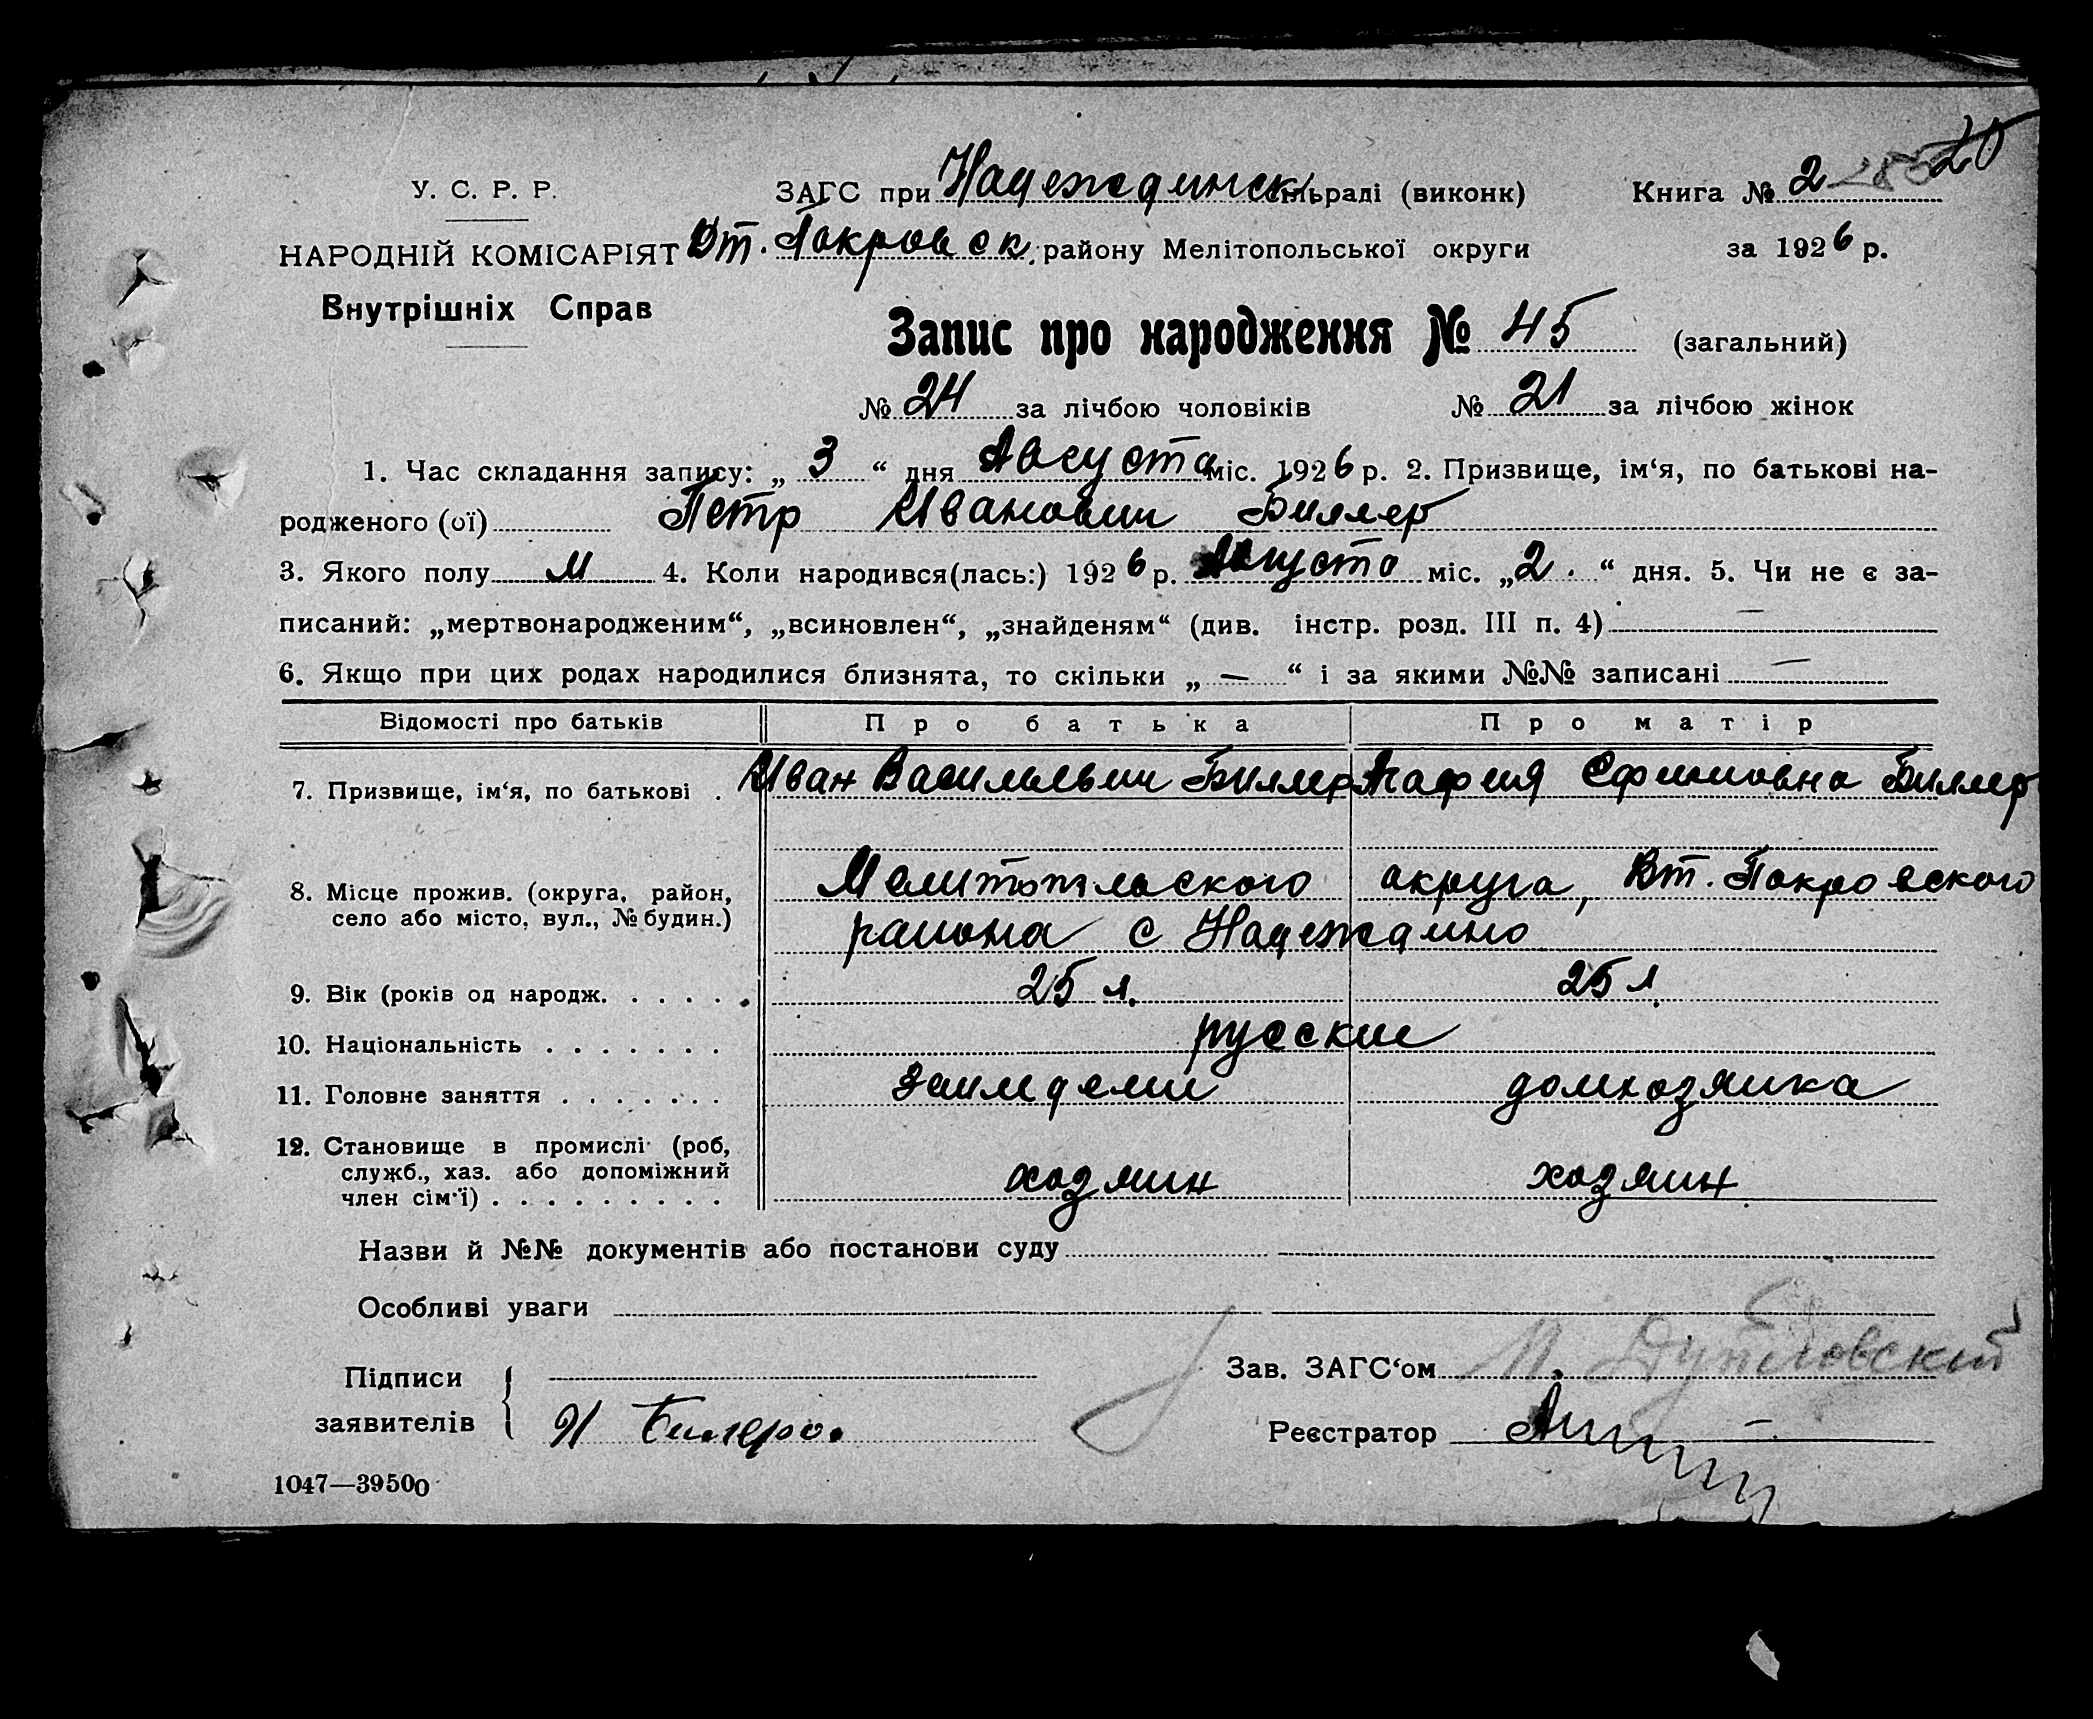 У. С. Р. Р.
НАРОДНІЙ КОМІСАРІЯТ
Внутрішніх Справ
ЗАГС при Надеждинск. сільраді (виконк)
Вт. Покровск. району Мелітопольської округи
Книга № 2
20
за 1926 р.
Запис про народження № 45 (загальний)
№ 24 за лічбою чоловіків № 21 за лічбою жінок
1. Час складання запису: „ 3 “ дня Августа міс. 1926 р. 2. Призвище, ім‘я, по батькові на-
родженого (ої) Петр Иванович Биллер
3. Якого полу м 4. Коли народився(лась:) 1926 р. Августа міс. „ 2. “ дня. 5. Чи не є за-
писаний: „мертвонародженим“, „всиновлен“, „знайденям“ (див. інстр. розд. III п. 4) —
6. Якщо при цих родах народилися близнята, то скільки „ — “ і за якими №№ записані —
Відомості про батьків Про батька Про матір
7. Призвище, ім‘я, по батькові . Иван Васильевич Биллер Агафия Ефимовна Биллер
8. Місце прожив. (округа, район, Мелитопольского округа, Вт. Покровского
село або місто, вул., № будин.) района с Надеждино
9. Вік (років од народж. . . . . . 25 л. 25 л.
10. Національність . . . . . . . русские
11. Головне заняття . . . . . . . домхозяика
12. Становище в промислі (роб,
служб., хаз. або допоміжний
член сім‘ї) . . . . . . . . . хозяин хозяин
Назви й №№ документів або постанови суду
Особливі уваги
Підписи
заявителів И Биллер
Зав. ЗАГС‘ом М.
Реєстратор
1047—39500